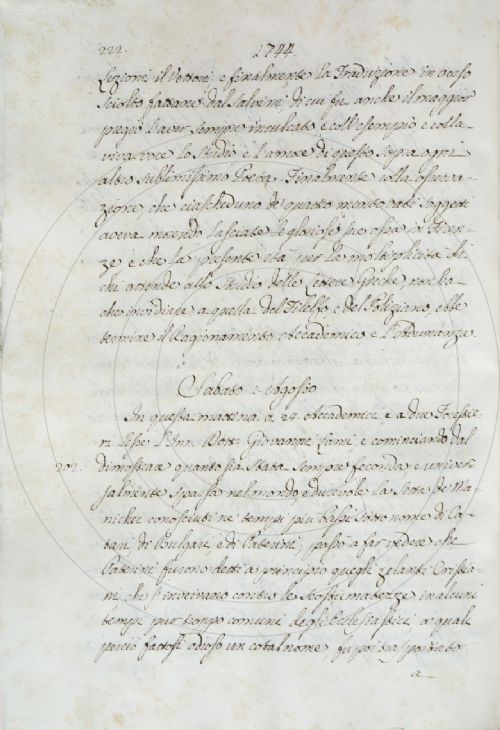 222.
1744
Lezioni il Dottore, e finalmente la Traduzione in verso
Sciolto fattane dal Salvini, di cui fu anche il maggior
pregio l'aver sempre inculcato e coll'esempio e colla
viva voce lo Studio e l'amore di questo sopra ogni
altro sublimissimo Poeta. Finalmente colla osserva-
zione, che ciascheduno de' quattro mentovati Soggetti
aveva morendo lasciate le gloriose sue ossa in Firen-
ze, e che la presente età per la molteplicità di
chi attende allo Studio delle Lettere Greche, non ha
che invidiare a quella del Filelfo, e del Poliziano, ebbe
termine il Ragionamento Accademico e l'Adunanza.
Sabato 1 Agosto
In questa mattina a 24. Accademici e a due Forestie-
ri lesse l'Inn. Dott. Giovanni Lami, e cominciando dal
202.
dimostrare quanto sia stata sempre feconda, e univer-
salmente sparsa nel mondo, e durevole la Sette de' Ma-
nichei conosciuti ne' tempi più bassi sotto nome di Ca-
tari, di Bulgari, e di Paterini, passò a far vedere che
Paterini furono detti a principio quegli zelanti Cristia-
ni, che s'inveivano contro le scostumatezze in alcuni
tempi pur troppo comuni degli Ecclesiastici, ai quali
perciò fattosi odioso un cotal nome fu poi trasportato
a